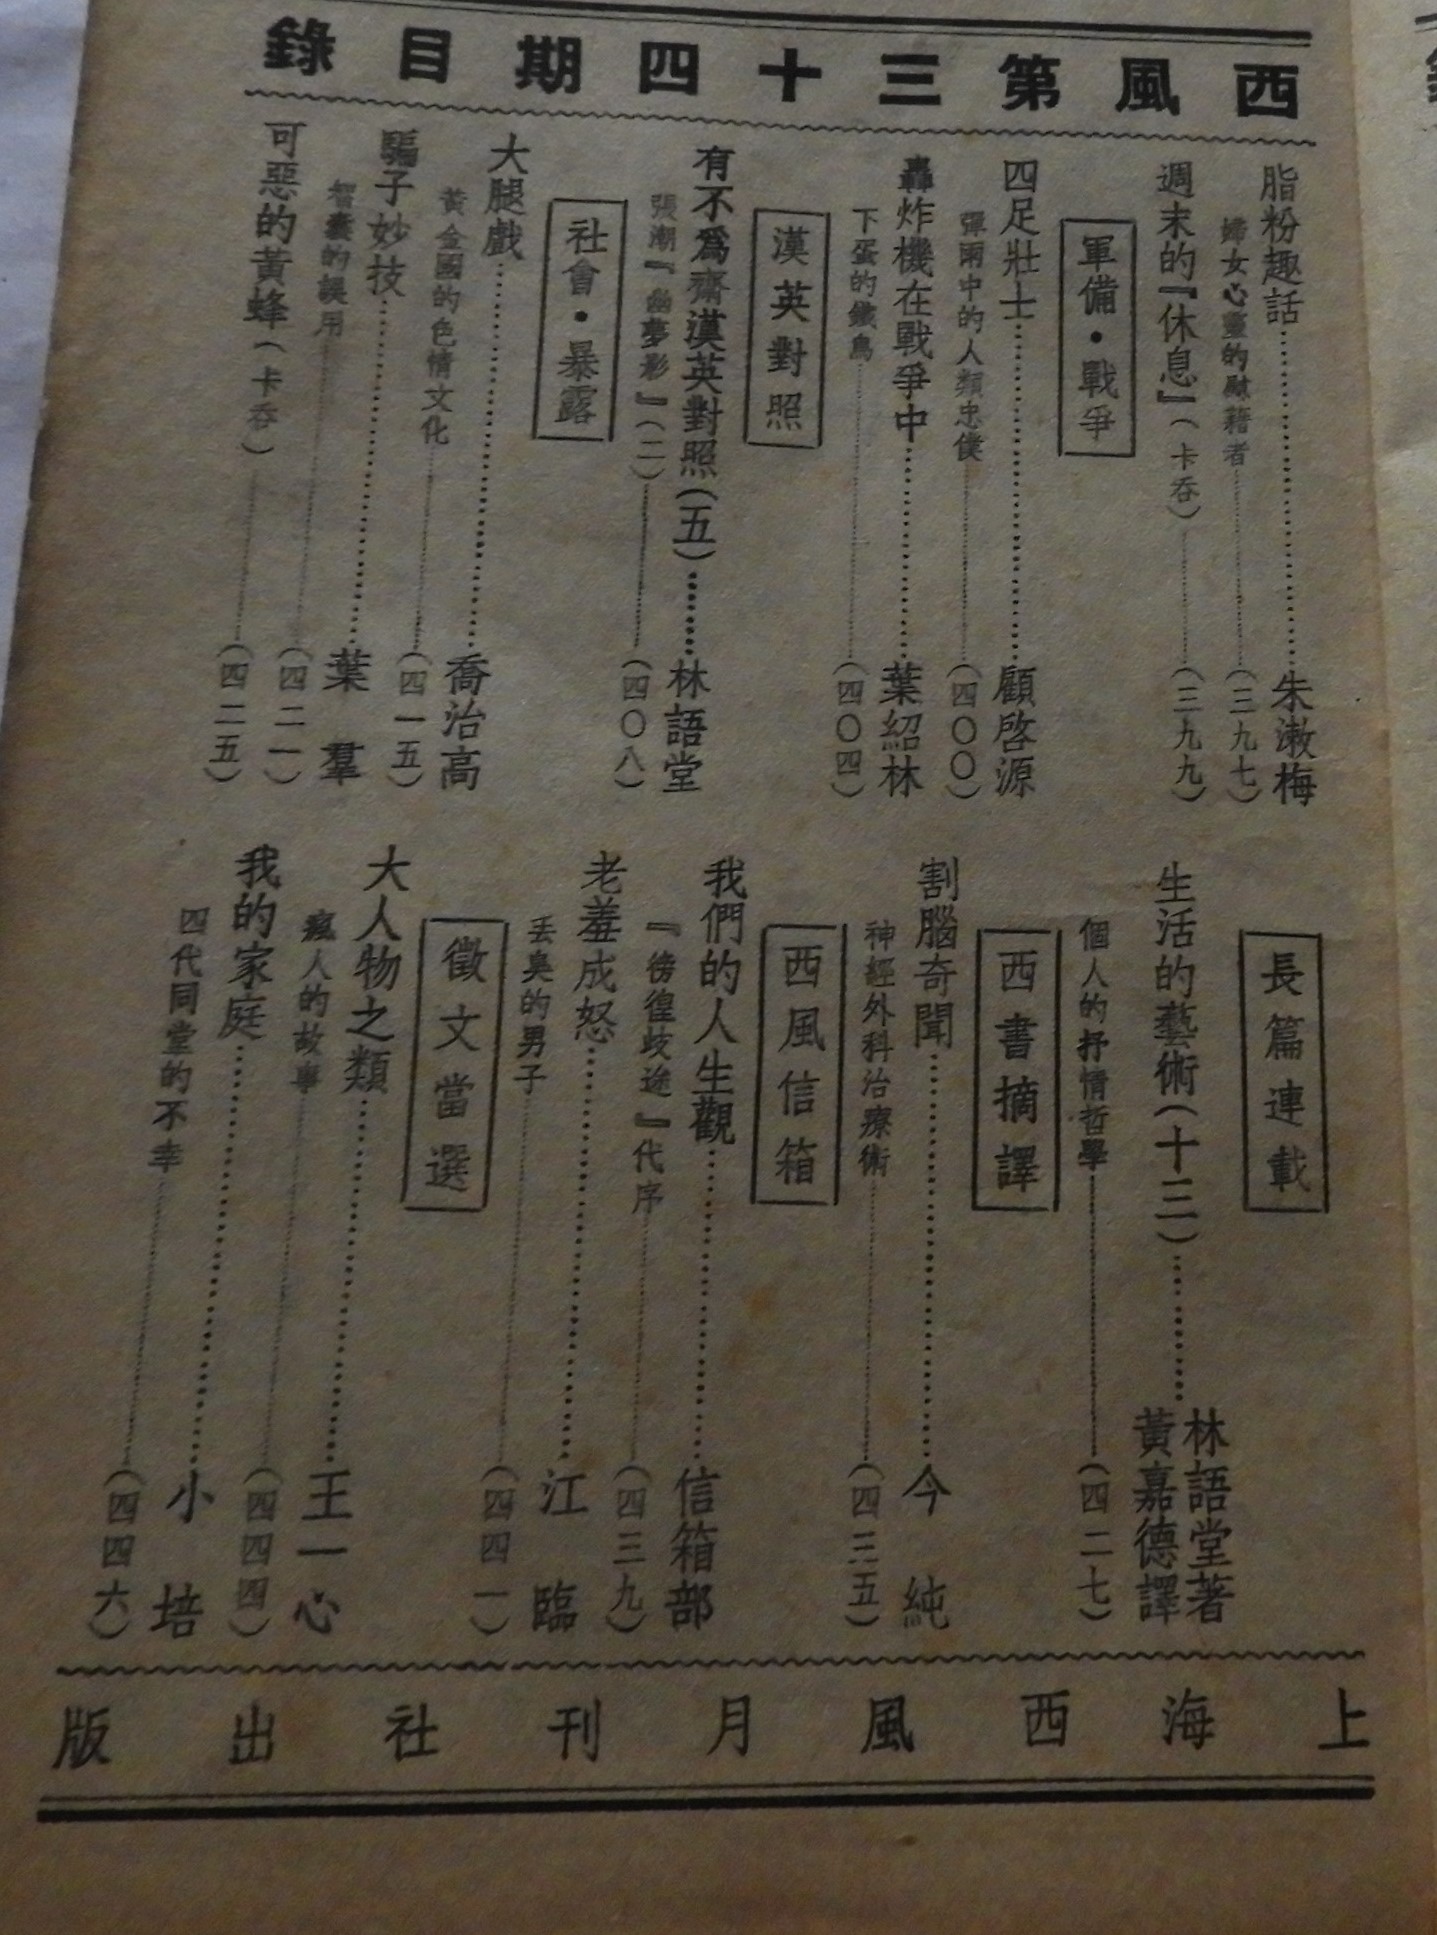 西風第三十四期目錄
脂粉趣話……朱漱梅
婦女心靈的慰藉者……(三九七)
週末的『休息』(卡吞)……(三九九)
軍備・戰爭
四足壯士……顧啓源
彈雨中的人類忠僕……(四〇〇)
轟炸機在戰爭中……葉紹林
下蛋的鐵鳥……(四〇四)
漢英對照
有不爲齋漢英對照(五)……林語堂
張潮『幽夢影』(二)……(四〇八)
社會・暴露
大腿戲……喬治高
黃金國的色情文化……(四一五)
騙子妙技……葉羣
智囊的誤用……(四二一)
可惡的黃蜂(卡吞)……(四二五)
長篇連載
生活的藝術(十三)……林語堂著
黃嘉德譯
個人的抒情哲學……(四二七)
西書摘譯
割腦奇聞……今純
神經外科治療術……(四三五)
西風信箱
我們的人生觀……信箱部
『徬徨歧途』代序……(四三九)
老羞成怒……江臨
丟臭的男子……(四四一)
徵文當選
大人物之類……王一心
瘋人的故事……(四四四)
我的家庭……小培
四代同堂的不幸……(四四六)
上海西風月刊社出版